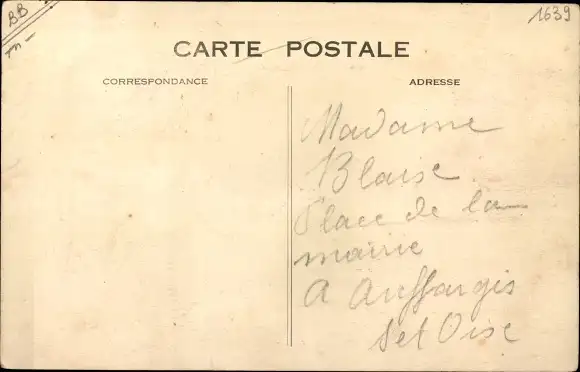 BB
1639
CARTE POSTALE
CORRESPONDANCE
ADRESSE
Madame
Blaise
Place de la
mairie
A Auffargis
S et Oise